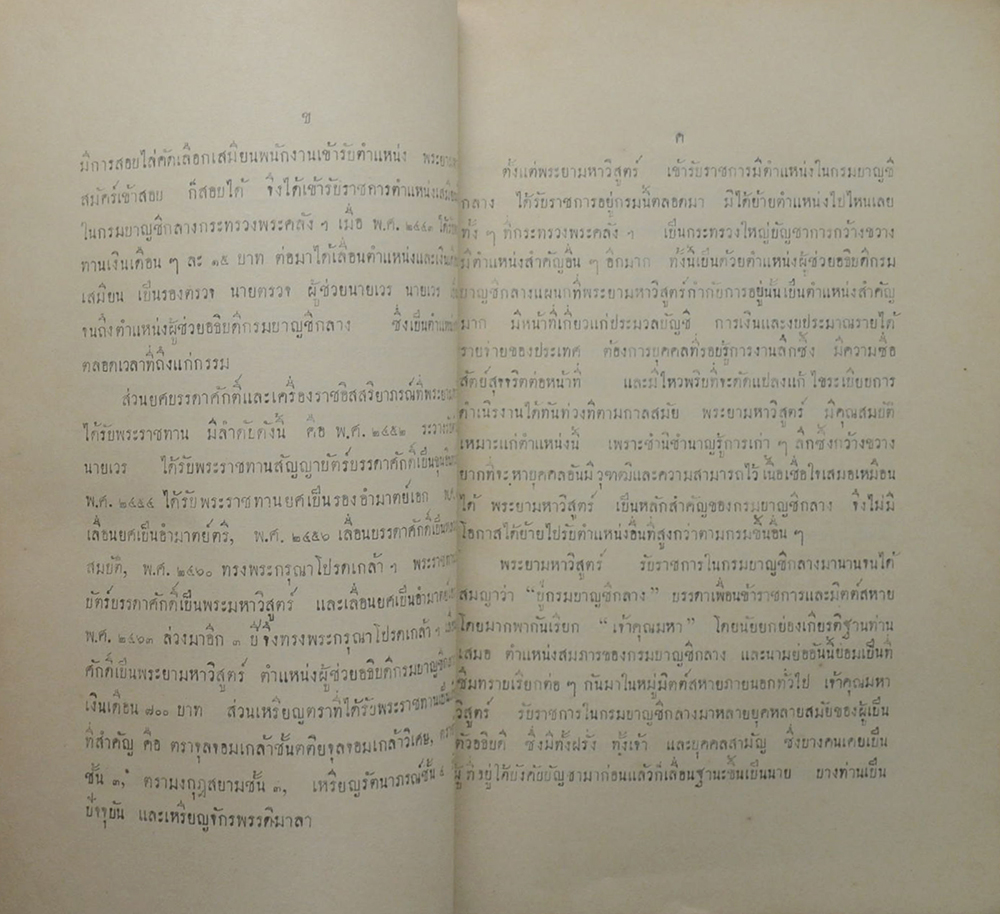 ข
มีการสอบไล่คัดเลือกเสมียนพนักงานเข้ารับตำแหน่ง
สมัคร์เข้าสอบ ก็สอบได้ จึงได้เข้ารับราชการตำแหน่งเสมียน
ในกรมบาญชีกลางกระทรวงพระคลัง ฯ เมื่อ พ.ศ.
ทานเงินเดือน ๆ ละ ๑๕ บาท ต่อมาได้เลื่อนตำแหน่งและเงิน
เสมียน เป็นรองตรวจ นายตรวจ ผู้ช่วยนายเวร นายเวร
จนถึงตำแหน่งผู้ช่วยอธิบดีกรมบาญชีกลาง ซึ่งเป็นตำแหน่ง
ตลอดเวลาที่ถึงแก่กรรม
ส่วนยศบรรดาศักดิ์และเครื่องราชอิสสริยาภรณ์ที่พระยา
ได้รับพระราชทาน มีลำดับดังนี้ คือ พ.ศ. ๒๔๕๒
นายเวร ได้รับพระราชทานสัญญาบัตร์บรรดาศักดิ์เป็นขุน
พ.ศ. ๒๔๕๔ ได้รับพระราชทานยศเป็นรองอำมาตย์เอก
เลื่อนยศเป็นอำมาตย์ตรี, พ.ศ. ๒๔๕๖ เลื่อนบรรดาศักดิ์เป็น
สมบัติ, พ.ศ. ๒๔๖๐ ทรงพระกรุณาโปรดเกล้า ฯ
บัตร์บรรดาศักดิ์เป็นพระมหาวิสูตร์ และเลื่อนยศเป็นอำมาตย์
พ.ศ. ๒๔๖๓ ล่วงมาอีก ๓ ปีจึงทรงพระกรุณาโปรดเกล้า ฯ
ศักดิ์เป็นพระยามหาวิสูตร์ ตำแหน่งผู้ช่วยอธิบดีกรมบาญชีกลาง
เงินเดือน ๗๐๐ บาท ส่วนเหรียญตราที่ได้รับพระราชทาน
ที่สำคัญ คือ ตราจุลจอมเกล้าชั้นตติยจุลจอมเกล้าวิเศษ,
ชั้น ๓, ตรามงกุฎสยามชั้น ๓, เหรียญรัตนาภรณ์ชั้น
ปัจจุบัน และเหรียญจักรพรรดิมาลา
ค
ตั้งแต่พระยามหาวิสูตร์ เข้ารับราชการมีตำแหน่งในกรมบาญชี
กลาง ได้รับราชการอยู่กรมนี้ตลอดมา มิได้ย้ายตำแหน่งไปไหนเลย
ทั้ง ๆ ที่กระทรวงพระคลัง ฯ เป็นกระทรวงใหญ่บัญชาการกว้างขวาง
มีตำแหน่งสำคัญอื่น ๆ อีกมาก ทั้งนี้เป็นด้วยตำแหน่งผู้ช่วยอธิบดีกรม
บาญชีกลางแผนกที่พระยามหาวิสูตร์กำกับการอยู่นั้นเป็นตำแหน่งสำคัญ
มาก มีหน้าที่เกี่ยวแก่ประมวลบัญชี การเงินและงบประมาณรายได้
รายจ่ายของประเทศ ต้องการบุคคลที่รอบรู้การงานลึกซึ้ง มีความซื่อ
สัตย์สุจริตต่อหน้าที่ และมีไหวพริบที่จะดัดแปลงแก้ไขระเบียบการ
ดำเนิรงานได้ทันท่วงทีตามกาลสมัย พระยามหาวิสูตร์ มีคุณสมบัติ
เหมาะแก่ตำแหน่งนี้ เพราะชำนิชำนาญรู้การเก่า ๆ ลึกซึ้งกว้างขวาง
ยากที่จะหาบุคคลอันมีวุฑฒิและความสามารถไว้เนื้อเชื่อใจเสมอเหมือน
ได้ พระยามหาวิสูตร์ เป็นหลักสำคัญของกรมบาญชีกลาง จึงไม่มี
โอกาสได้ย้ายไปรับตำแหน่งอื่นที่สูงกว่าตามกรมชั้นอื่น ๆ
พระยามหาวิสูตร์ รับราชการในกรมบาญชีกลางมานานจนได้
สมญาว่า “ปู่กรมบาญชีกลาง” บรรดาเพื่อนข้าราชการและมิตต์สหาย
โดยมากพากันเรียก “เจ้าคุณมหา” โดยนัยยกย่องเกียรติฐานท่าน
เสมอ ตำแหน่งสมภารของกรมบาญชีกลาง และนามย่ออันนี้ย่อมเป็นที่
ซึมทราบเรียกต่อ ๆ กันมาในหมู่มิตต์สหายภายนอกทั่วไป เจ้าคุณมหา
วิสูตร์ รับราชการในกรมบาญชีกลางมาหลายยุคหลายสมัยของผู้เป็น
ตัวอธิบดี ซึ่งมีทั้งฝรั่ง ทั้งเจ้า และบุคคลสามัญ ซึ่งบางคนเคยเป็น
ผู้ที่อยู่ใต้บังคับบัญชามาก่อนแล้วก็เลื่อนฐานะขึ้นเป็นนาย บางท่านเป็น